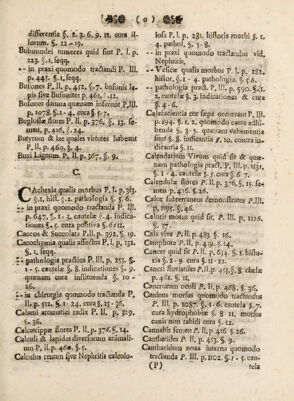 ( 0 )
differentiis §. 2. 3. 6. 9. 11. cura il-
lorum. §. 12 - 19.
Bubonodei tumores quid sint P. I. p.
223. §. 1. seqq.
-- in praxi quomodo tractandi P. III.
p. 445. §. 1. seqq.
Bufones P. II. p. 452, §. 7. bufonii la-
pis sive Bufonites p. 461. §. -12.
Bufones damna quantam inferent P. III.
p. 1078. §. 1 - 4. cura §. 7
Buglossæ flores P. II. p. 376, §. 13. se-
men, p. 416. §. 26.
Butyrum & lac quales virtutes habeant
P. II. p. 460. §. 4.
Buxi Lignum. P. II. p. 367, §. 9.
C.
CAchexia qualis morbus P. I. p. 313.
§. 1. hist. §. 2. pathologia §. 5. 6.
-- in praxi quomodo tractanda P. III.
p. 647. §. 1 - 3. cautelæ §. 4. indica-
tiones §. 5. cura positiva §. 6
Caccos & Succolata P. II. p. 392, §. 19.
Cacochymia qualis affectus P. I. p. 132.
§. 1. seqq.
-- pathologia practica P. III. p. 252. §.
1 - 5. cautelæ §. 8. indicationes §. 9.
quantam cura instituenda §. 10
- 26.
-- in chirurgia quomodo tractanda P.
III. p. 172. §. 1 - 24. cura §. 25 - 36.
Calami aromatici radix P. II. p. 329.
§. 36.
Calcatrippæ flores P. II. p. 376. §. 14.
Calculi & lapides diversorum animali-
um P. II. p. 460. §. 5.
Calculus renum sive Nephritis calculo-
losf P. I. p. 281. historia morbi §. 1
4. pathol. §. 3 - 8.
-- in praxi quomodo tractandus vid.
Nephritis.
-- Vesicæ qualis morbus P. I. p. 282.
histor. §. 1 - 4. pathologia. §. 5 6.
-- pathologia pract. P. III. p. 590. §. 1.
2. cautelæ §. 3. indicationes & cura
§. 4 - 6.
Calendarium Vivum quid sit & quæ-
nam pathologia pract. P. III. p. 1131.
§. 1. seqq. cautelæ §. 6.
Calendulæ flores P. II. p. 376, §. 15. se-
men p. 416. §. 26.
Calor subterraneus demonstratur P. III,
p. 195. §. 9.
Caloris motus quid sit P. III. p. 1176.
§. 77.
Calx viva P. II. p. 483. §. 4.
Camphora P. II. p. 439. §. 14.
Cancer quid sit P. II. p. 634. §. 1. histo-
ria §. 2 - 9. cura §. 11 - 21
Cancri fluviatiles P. II. p. 453. §. 8. chelæ
p. 465. §. 10.
Cancrorum oculi P. II. p. 468. §. 36.
Caninus morsus quomodo tractandus
P. III. p. 1087. §. 1 - 6. cautelæ §. 7.
cura hydrophobiæ §. 8 11. morsus
canis non rabidi cura §. 12.
Cannabis semen P. II. p. 416. §. 26.
Cantharides P. II. p. 453. §. 9.
Cantharidum noxa interna quomodo
tractanda P. III. p. 1102. §. 1 - 5. cau-
(P)
tela